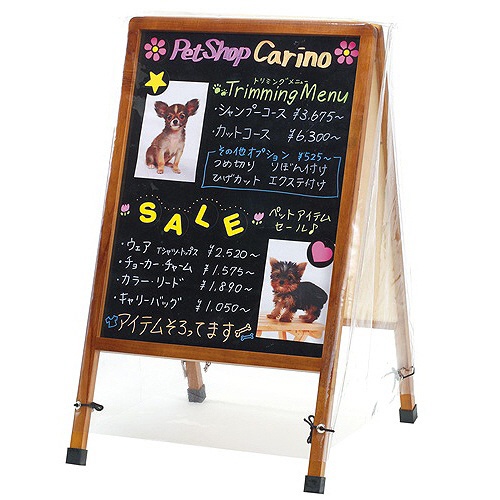 PetShop Carino
トリミングメニュー
Trimming Menu
・シャンプーコース ¥3,675~
・カットコース ¥6,300~
その他オプション ¥525~
つめ切り りぼん付け
ひげカット エクステ付け
SALE
ペットアイテム
セール♪
・ウェア Tシャツ・トップス ¥2,520~
・チョーカー・チャーム ¥1,575~
・カラー・リード ¥1,890~
・キャリーバッグ ¥1,050~
アイテムそろってます